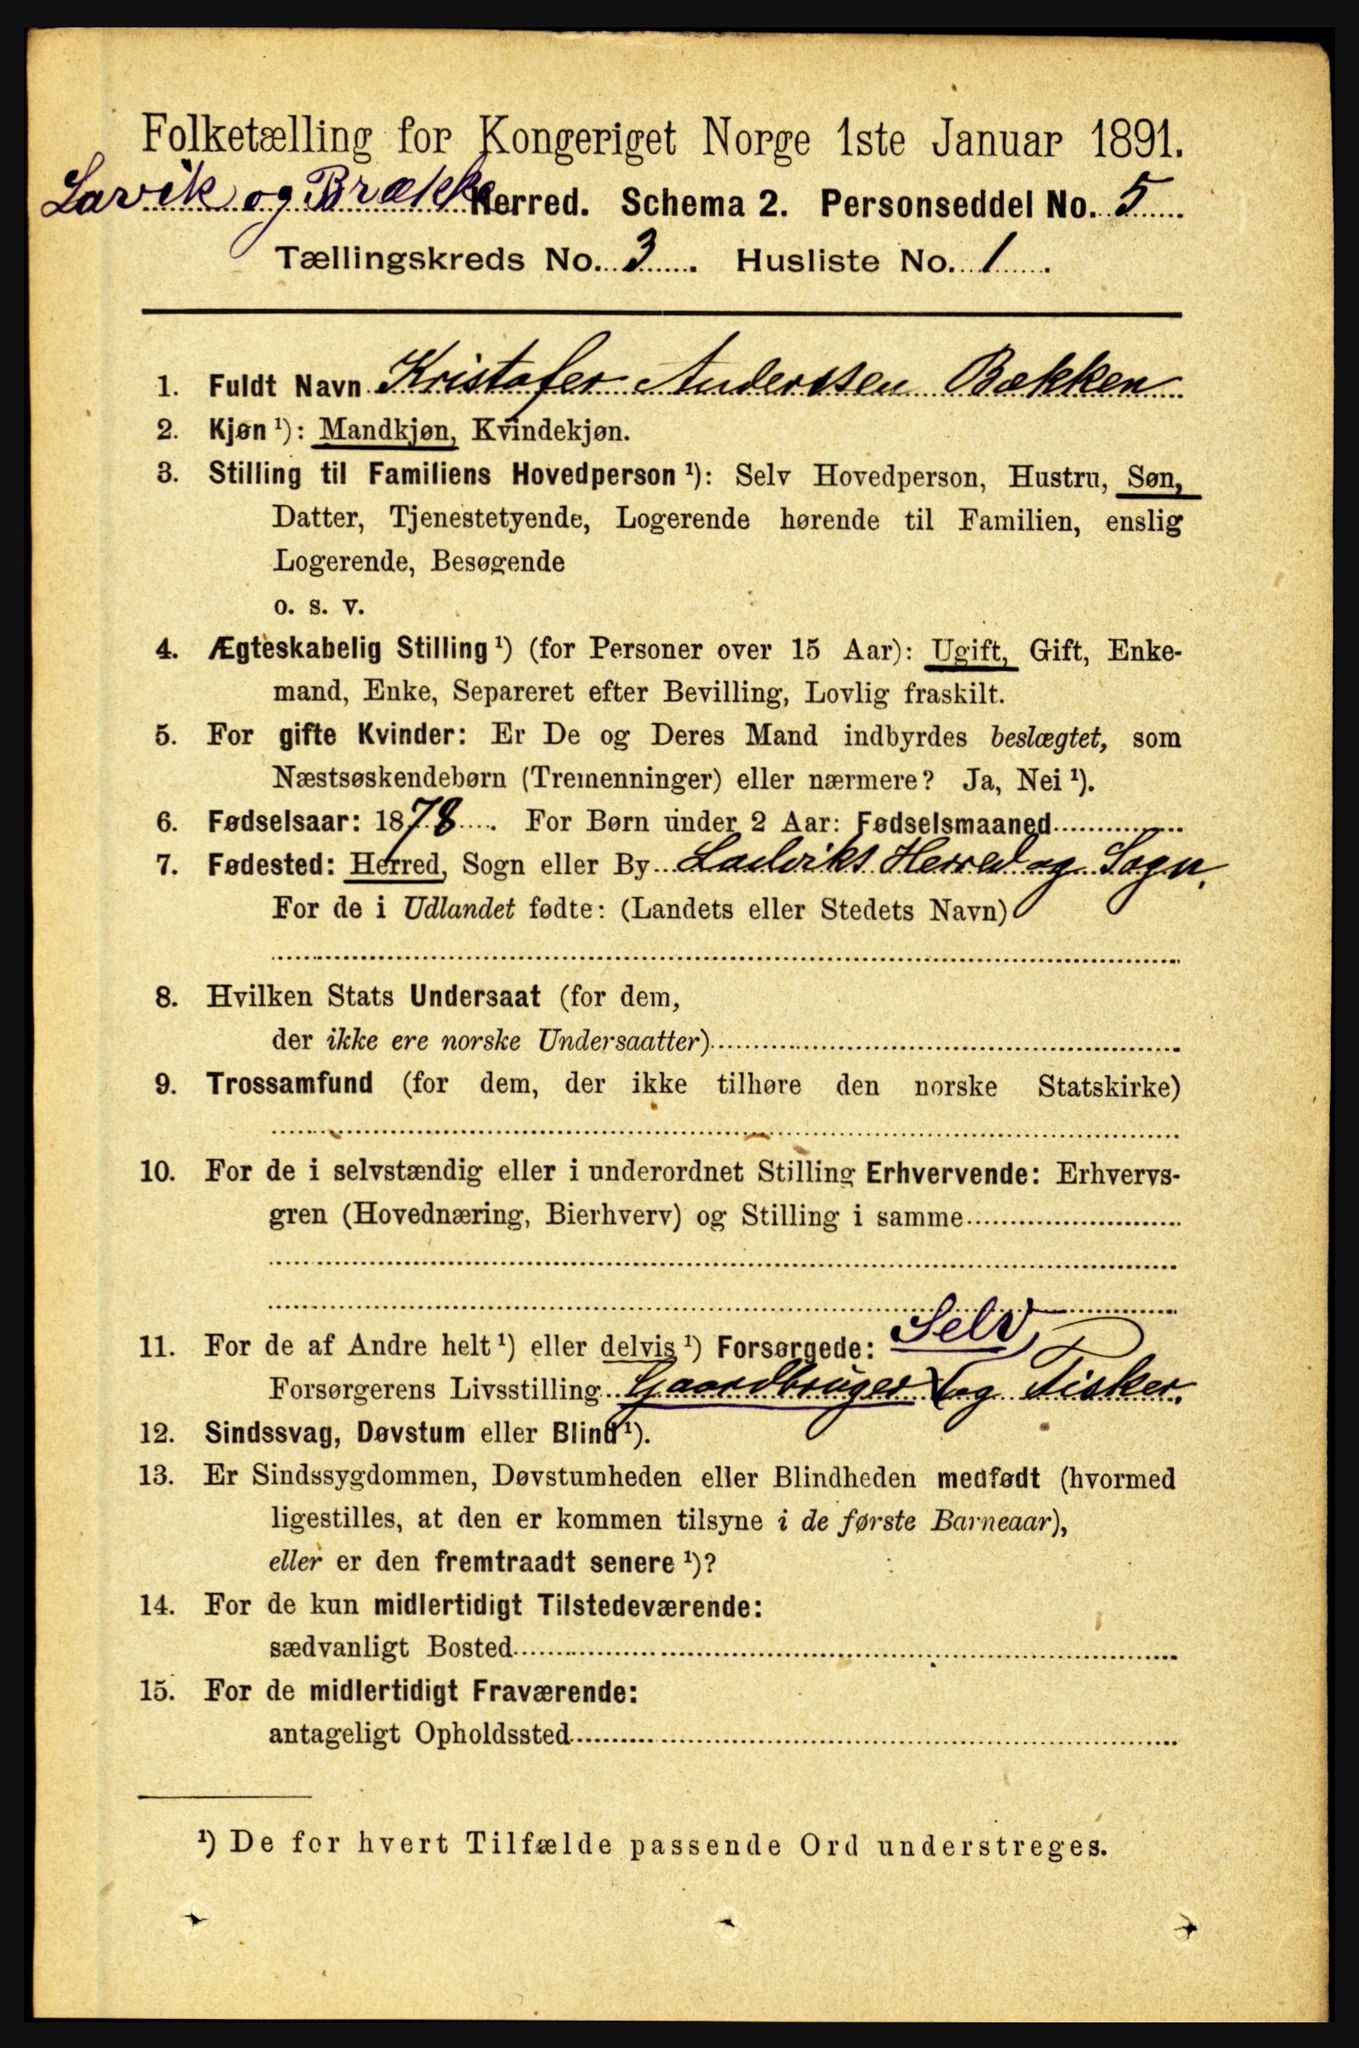 Folketælling for Kongeriget Norge 1ste Januar 1891.
Lavik og Brække Herred. Schema 2. Personseddel No. 5
Tællingskreds No. 3. Husliste No. 1.
1. Fuldt Navn Kristofer Anderssen Bækken
2. Kjøn ¹): Mandkjøn, Kvindekjøn.
3. Stilling til Familiens Hovedperson ¹): Selv Hovedperson, Hustru, Søn,
Datter, Tjenestetyende, Logerende hørende til Familien, enslig
Logerende, Besøgende
o. s. v.
4. Ægteskabelig Stilling ¹) (for Personer over 15 Aar): Ugift, Gift, Enke-
mand, Enke, Separeret efter Bevilling, Lovlig fraskilt.
5. For gifte Kvinder: Er De og Deres Mand indbyrdes beslægtet, som
Næstsøskendebørn (Tremenninger) eller nærmere? Ja, Nei ¹).
6. Fødselsaar: 1878. For Børn under 2 Aar: Fødselsmaaned
7. Fødested: Herred, Sogn eller By Ladviks Herred og Sogn.
For de i Udlandet fødte: (Landets eller Stedets Navn)
8. Hvilken Stats Undersaat (for dem,
der ikke ere norske Undersaatter)
9. Trossamfund (for dem, der ikke tilhøre den norske Statskirke)
10. For de i selvstændig eller i underordnet Stilling Erhvervende: Erhvervs-
gren (Hovednæring, Bierhverv) og Stilling i samme
11. For de af Andre helt ¹) eller delvis ¹) Forsørgede: Selv
Forsørgerens Livsstilling Gaardbruger og Fisker.
12. Sindssvag, Døvstum eller Blind ¹).
13. Er Sindssygdommen, Døvstumheden eller Blindheden medfødt (hvormed
ligestilles, at den er kommen tilsyne i de første Barneaar),
eller er den fremtraadt senere ¹)?
14. For de kun midlertidigt Tilstedeværende:
sædvanligt Bosted
15. For de midlertidigt Fraværende:
antageligt Opholdssted
¹) De for hvert Tilfælde passende Ord understreges.